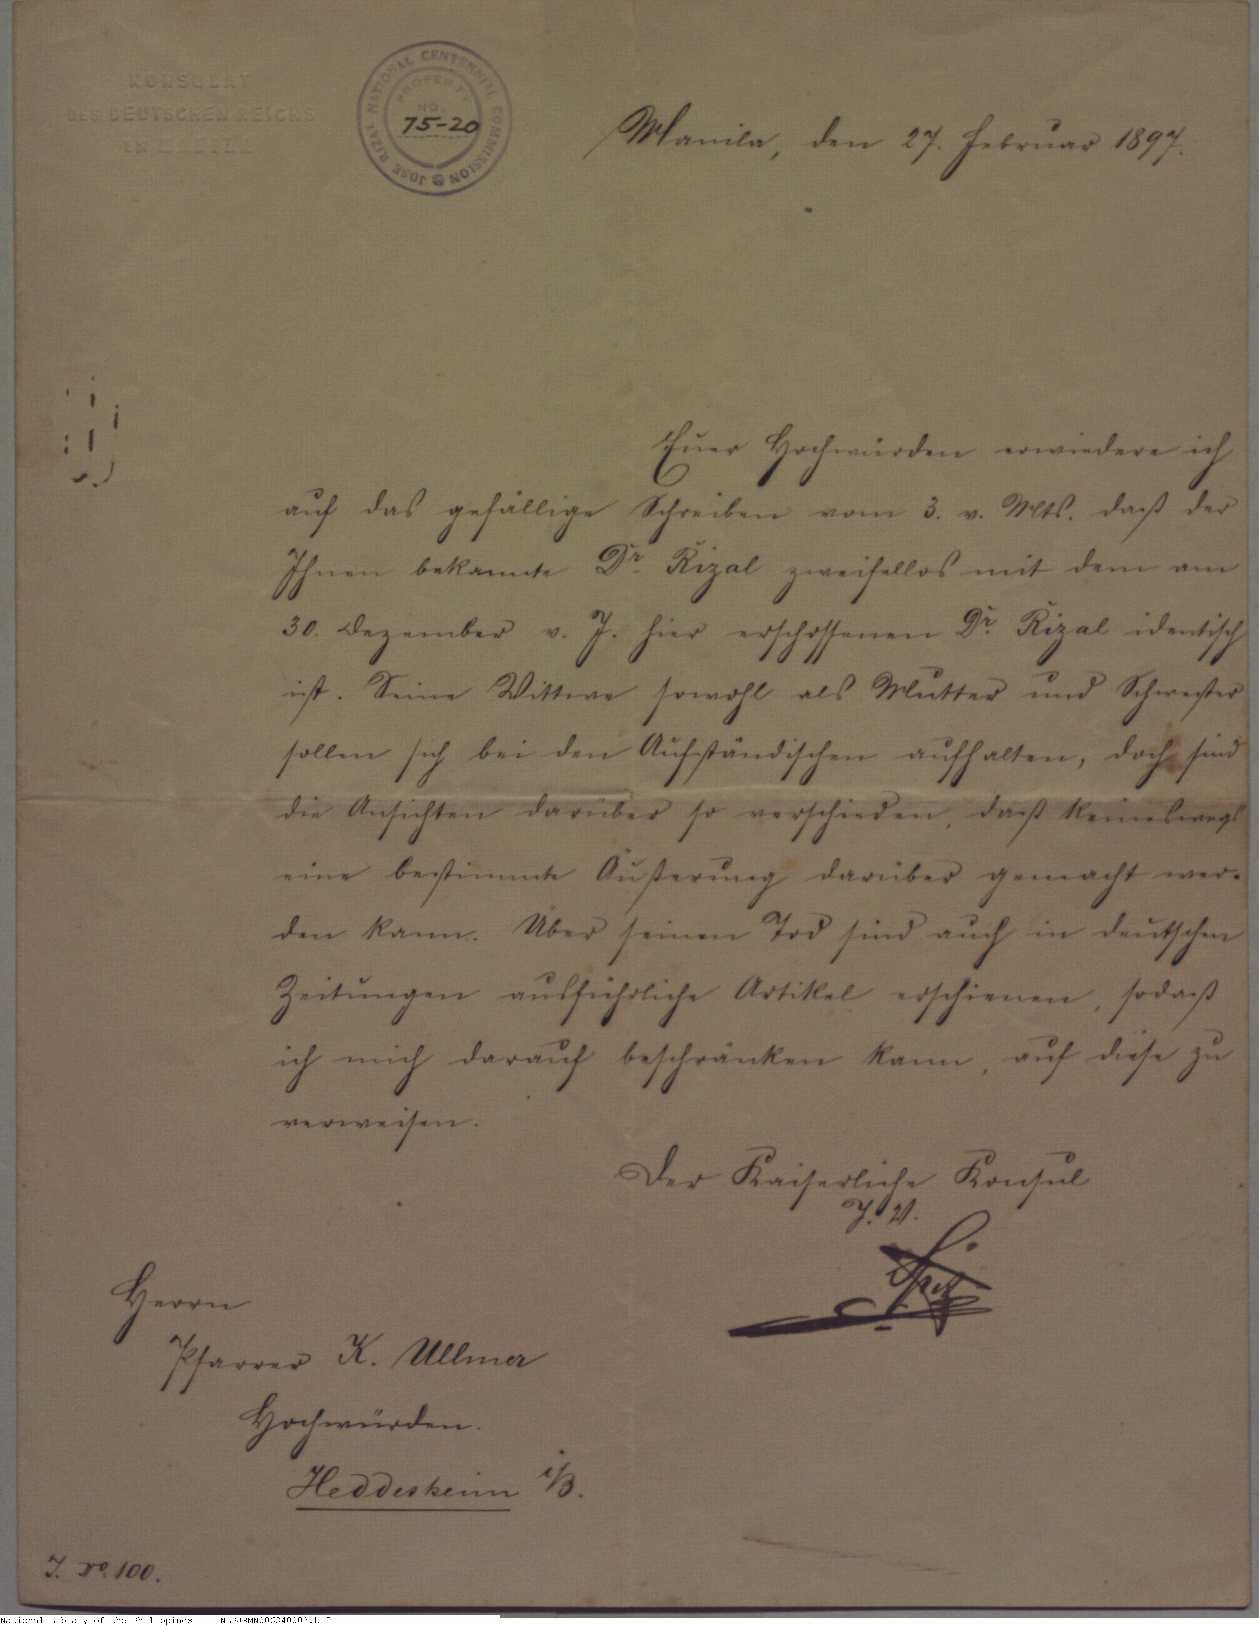 KONSULAT
DES DEUTSCHEN REICHS
IN MANILA
JOSE RIZAL NATIONAL CENTENNIAL COMMISSION
PROPERTY
NO.
75-20
Manila, den 27. Februar 1897.
Euer Hochwürden erwiedere ich
auf das gefällige Schreiben vom 3. v. Mts. daß der
Ihnen bekannte Dr. Rizal zweifellos mit dem am
30. Dezember v. J. hier erschossenen Dr. Rizal identisch
ist. Seine Wittwe sowohl als Mutter und Schwester
sollen sich bei den Aufständischen aufhalten, doch sind
die Ansichten darüber so verschieden, daß keineswegs
eine bestimmte Äußerung darüber gemacht wer-
den kann. Über seinen Tod sind auch in deutschen
Zeitungen ausführliche Artikel erschienen, sodaß
ich mich darauf beschränken kann, auf diese zu
verweisen.
Der Kaiserliche Konsul
J. V.
Herrn
Pfarrer K. Ullmer
Hochwürden.
Heddesheim i/B.
J. No. 100.
National Library of the Philippines